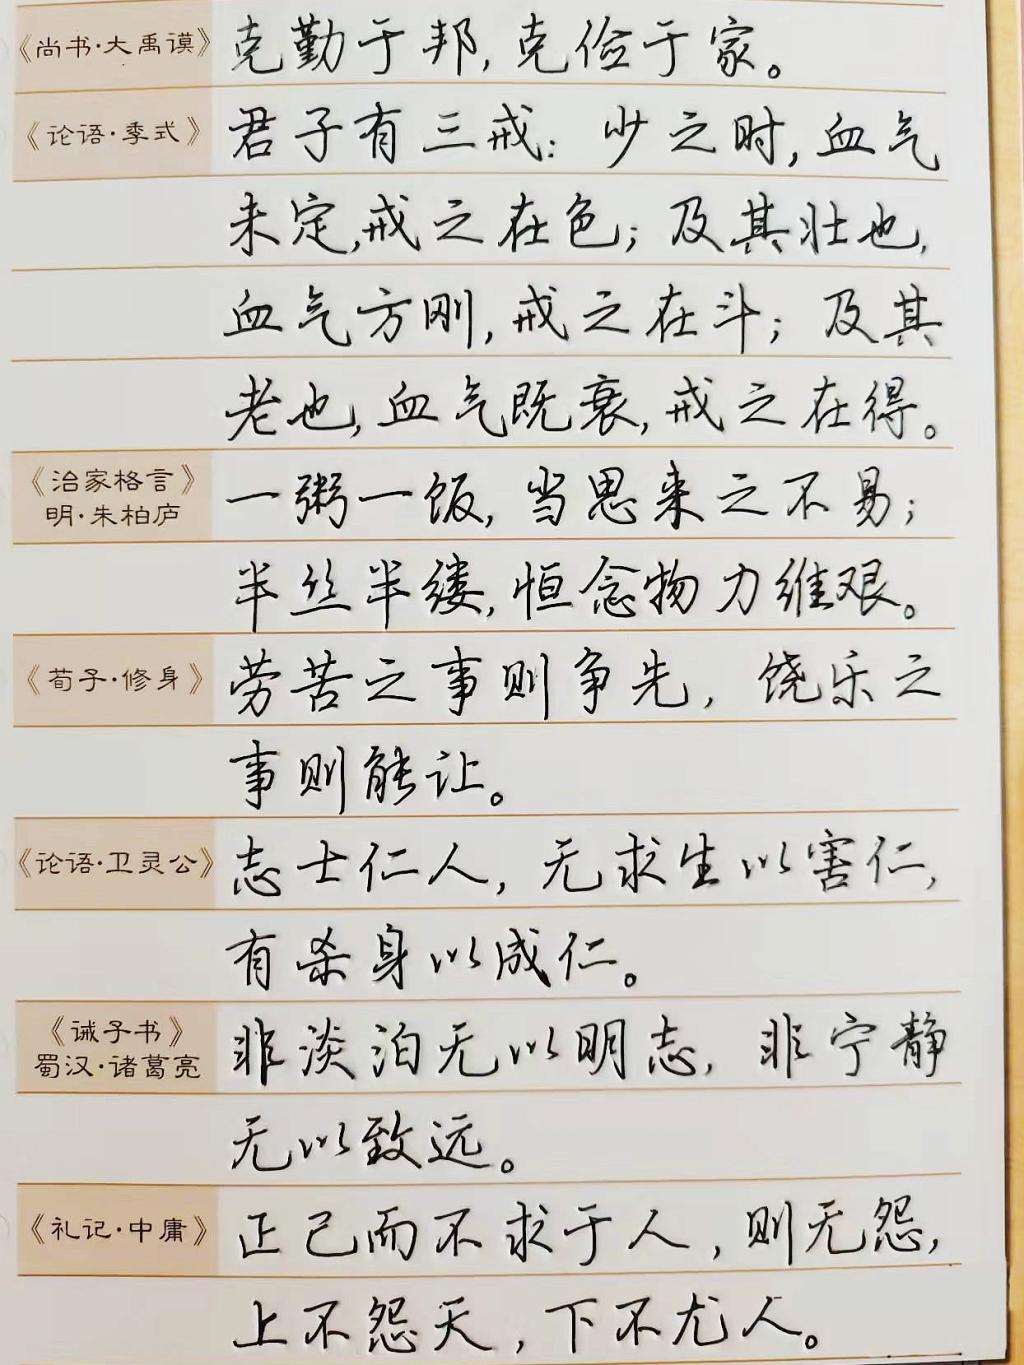 《尚书·大禹谟》 克勤于邦,克俭于家。
《论语·季式》 君子有三戒: 少之时,血气
未定,戒之在色;及其壮也,
血气方刚,戒之在斗;及其
老也,血气既衰,戒之在得。
《治家格言》
明·朱柏庐
一粥一饭,当思来之不易;
半丝半缕,恒念物力维艰。
《荀子·修身》 劳苦之事则争先,饶乐之
事则能让。
《论语·卫灵公》 志士仁人,无求生以害仁,
有杀身以成仁。
《诫子书》
蜀汉·诸葛亮
非淡泊无以明志,非宁静
无以致远。
《礼记·中庸》 正己而不求于人,则无怨,
上不怨天,下不尤人。